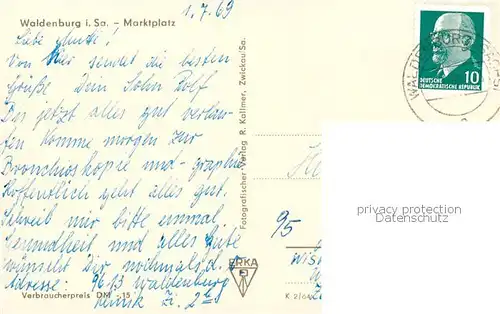 1.7.69
Waldenburg i. Sa. – Marktplatz
Liebe Mutti!
Von hier sendet die besten
Grüße Dein Sohn Rolf
Des jetzt alles gut verlau-
fen komme morgen zur
Bronchioskopie und -graphie
Hoffentlich geht alles gut.
Schreib mir bitte einmal
Gesundheit und alles Gute
wünscht Dir nochmals d.
Adresse: 9613 Waldenburg
Klinik Zi. 2
Verbraucherpreis DM -,15
Fotografischer Verlag R. Kallmer, Zwickau/Sa.
ERKA
95
K 2/64
10
DEUTSCHE
DEMOKRATISCHE REPUBLIK
privacy protection
Datenschutz